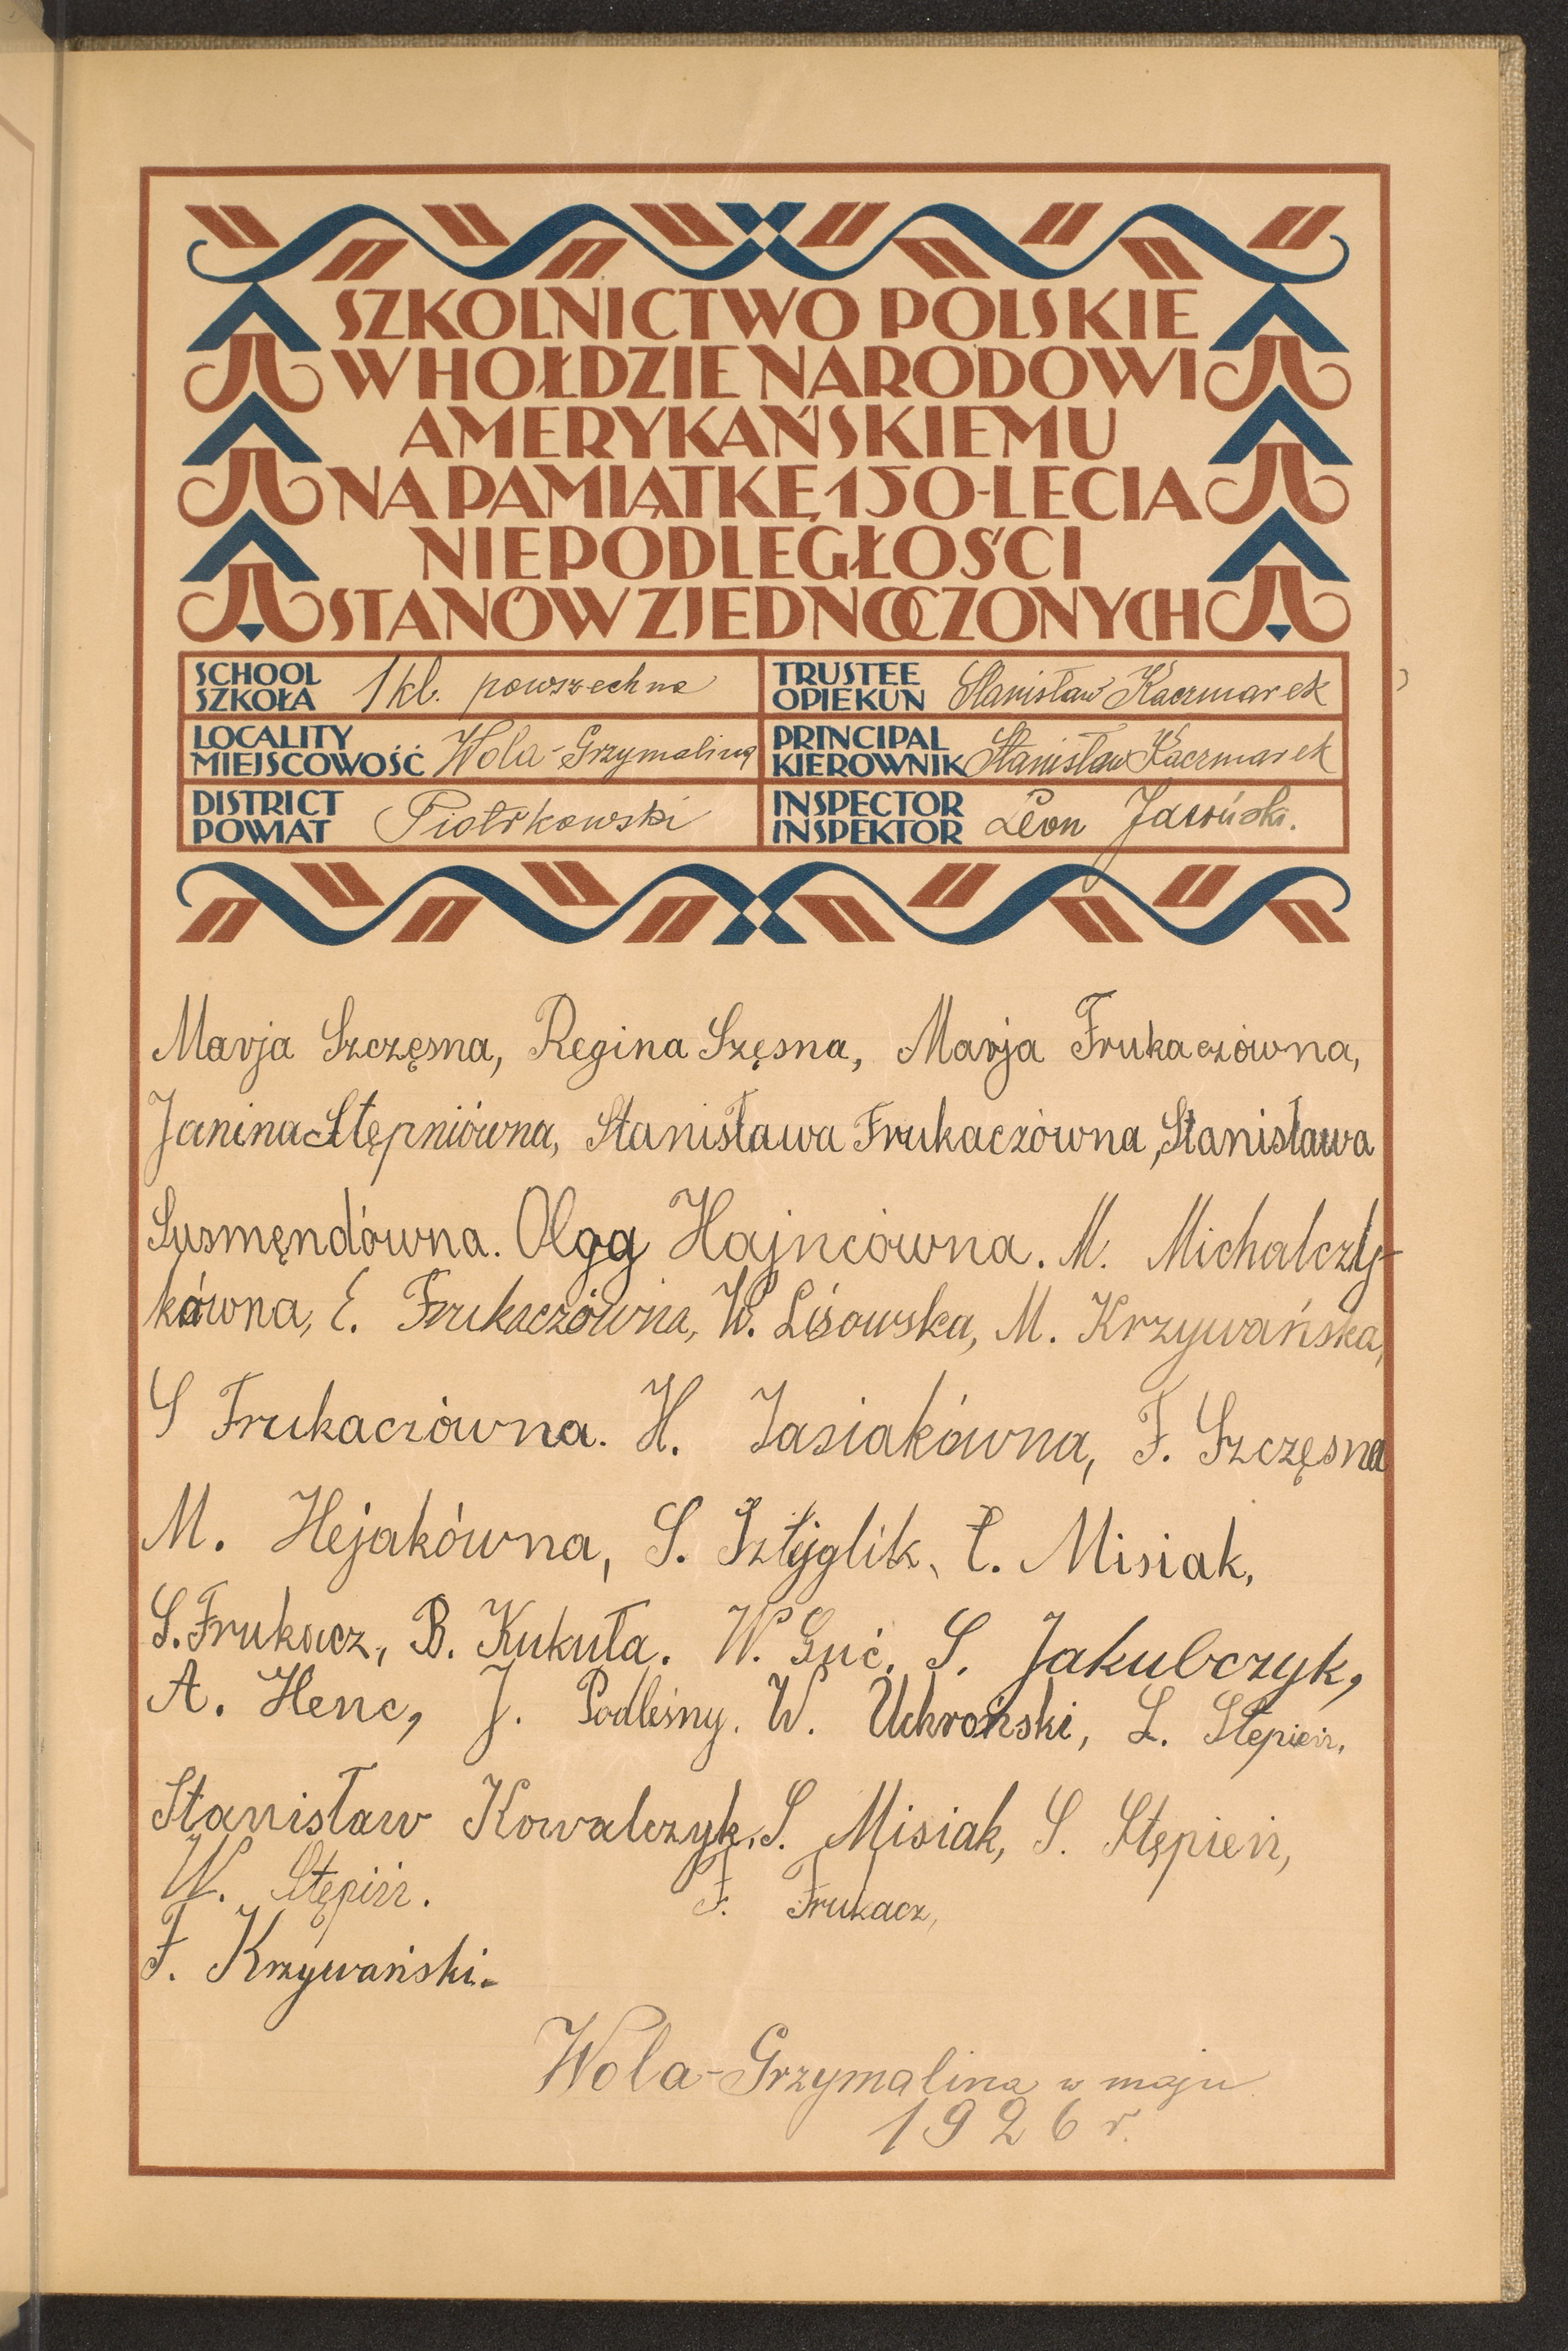 SZKOLNICTWO POLSKIE
W HOŁDZIE NARODOWI
AMERYKAŃSKIEMU
NA PAMIĄTKĘ 150-LECIA
NIEPODLEGŁOŚCI
STANÓW ZJEDNOCZONYCH
SCHOOL
SZKOŁA
1 kl. powszechna
TRUSTEE
OPIEKUN
Stanisław Kaczmarek
LOCALITY
MIEJSCOWOŚĆ
Wola-Grzymalina
PRINCIPAL
KIEROWNIK
Stanisław Kaczmarek
DISTRICT
POWIAT
Piotrkowski
INSPECTOR
INSPEKTOR
Leon
Marja Szczęsna, Regina Szęsna, Marja Frukaczówna,
Janina Stępniówna, Stanisława Frukaczówna, Stanisława
Susmęndówna. Olga Hajncówna. M. Michalczy-
kówna, E. Frukaczówna, W. Lisowska, M. Krzywańska,
S Frukaczówna. H. Jasiakówna, F. Szczęsna
M. Hejakówna, S. Sztyglik, C. Misiak,
S. Frukacz, B. Kukuła. W. Guć. S. Jakubczyk,
A. Henc, J. Podleśny. W. Uchroński, L. Stępień,
Stanisław Kowalczyk, S. Misiak, S. Stępień,
W. Stępiń. F. Frukacz,
F. Krzywański.
Wola-Grzymalina w maju
1926 r.